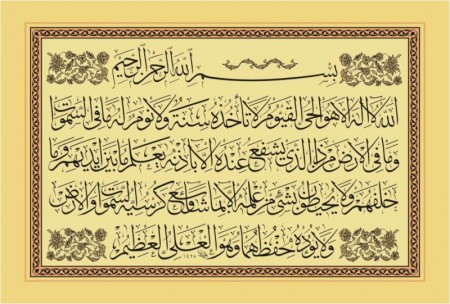 بسم الله الرحمن الرحيم
الله لا اله الا هو الحي القيوم لا تأخذه سنة ولا نوم له ما في السموات
وما في الارض من ذا الذي يشفع عنده الا باذنه يعلم ما بين ايديهم وما
خلفهم ولا يحيطون بشئ من علمه الا بما شاء وسع كرسيه السموات والارض
ولا يؤده حفظهما وهو العلي العظيم